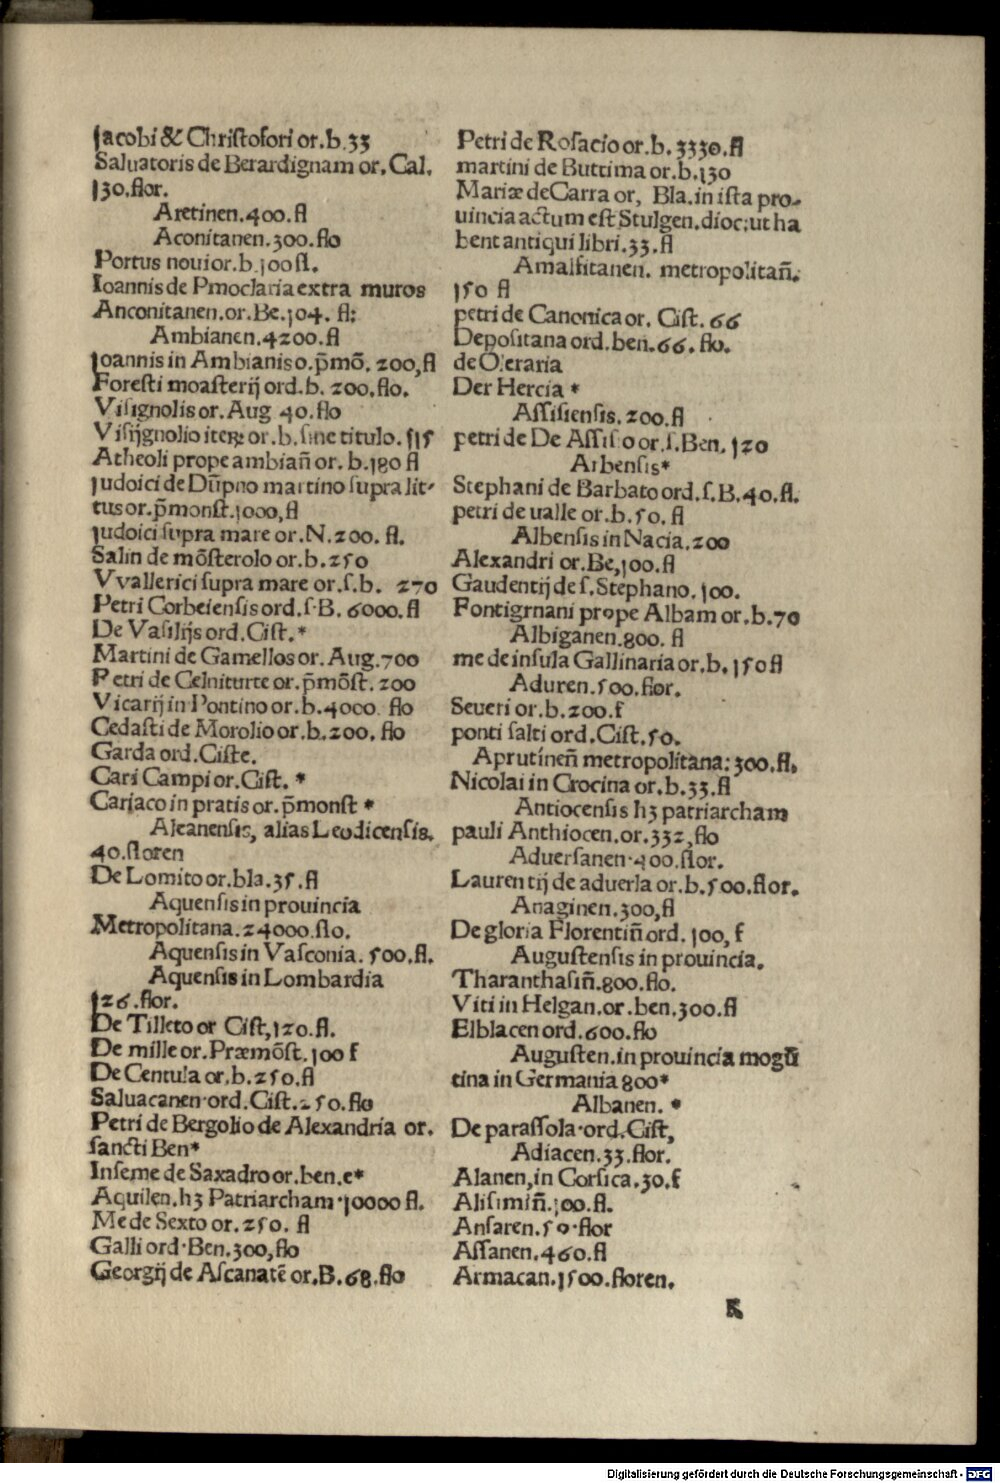 Jacobi & Christofori or.b.33
Saluatoris de Berardignam or. Cal.
130.flor.
Aretinen.400.fl
Aconitanen.300.flo
Portus noui or.b.100 fl.
Ioannis de Pmoclaria extra muros
Anconitanen.or.Be.104. fl:
Ambianen.4200.fl
Joannis in Ambianis o.p̄mō. 200,fl
Foresti moasterij ord.b. 200.flo.
Visignolis or. Aug 40.flo
Visijgnolio iteꝝ or.b.sine titulo. 515
Atheoli prope ambiañ or. b.180 fl
Judoici de Dūpno martino supra lit-
tus or.p̄monst.1000,fl
Judoici supra mare or.N.200. fl.
Salin de mōsterolo or.b.250
Vvallerici supra mare or.s.b. 270
Petri Corbeiensis ord.s.B. 6000.fl
De Vasilijs ord.Cist.*
Martini de Gamellos or. Aug.700
Petri de Celniturte or.p̄mōst.200
Vicarij in Pontino or.b.4000 flo
Cedasti de Morolio or.b.200. flo
Garda ord.Ciste.
Cari Campi or.Cist. *
Cariaco in pratis or.p̄monst *
Aleanensis, alias Leodicensis.
40.floren
De Lomito or.bla.35.fl
Aquensis in prouincia
Metropolitana.24000.flo.
Aquensis in Vasconia. 500.fl.
Aquensis in Lombardia
126.flor.
De Tilleto or Cist,120.fl.
De mille or.Præmōst.100 f
De Centula or.b.250.fl
Saluacanen.ord.Cist.250.flo
Petri de Bergolio de Alexandria or.
sancti Ben*
Inseme de Saxadro or.ben.e*
Aquilen.hꝫ Patriarcham.10000 fl.
Me de Sexto or.250. fl
Galli ord.Ben.300,flo
Georgij de Ascanatē or.B.68.flo
Petri de Rosacio or.b.3330.fl
martini de Buttrima or.b.130
Mariæ de Carra or, Bla.in ista pro-
uincia actum est Stulgen.dioc:ut ha
bent antiqui libri.33.fl
Amalfitanen. metropolitañ.
150 fl
petri de Canonica or. Cist.66
Depositana ord.ben.66.flo.
de O:eraria
Der Hercia *
Assisiensis.200.fl
petri de De Assiso or.s.Ben.120
Arbensis*
Stephani de Barbato ord.s.B.40.fl.
petri de ualle or.b.50.fl
Albensis in Nacia.200
Alexandri or.Be,100.fl
Gaudentij de s.Stephano.100.
Fontigrnani prope Albam or.b.70
Albiganen.800. fl
me de insula Gallinaria or.b.150 fl
Aduren.500.flor.
Seueri or.b.200.f
ponti salti ord.Cist.50.
Aprutíneñ metropolitana:300.fl.
Nicolai in Crocina or.b.33.fl
Antiocensis hꝫ patriarcham
pauli Anthiocen.or.332,flo
Aduersanen.400.flor.
Laurentij de aduerla or.b.500.flor.
Anaginen.300,fl
De gloria Florentiñ ord.100,f
Augustensis in prouincia.
Tharanthasiñ.800.flo.
Viti in Helgan.or.ben.300.fl
Elblacen ord.600.flo
Augusten.in prouincia mogū
tina in Germania 800*
Albanen.*
De parassola.ord.Cist,
Adiacen.33.flor.
Alanen,in Corsica.30.f
Alisimiñ.100.fl.
Ansaren.50.flor
Assanen.460.fl
Armacan.1500.floren.
K
Digitalisierung gefördert durch die Deutsche Forschungsgemeinschaft - DFG